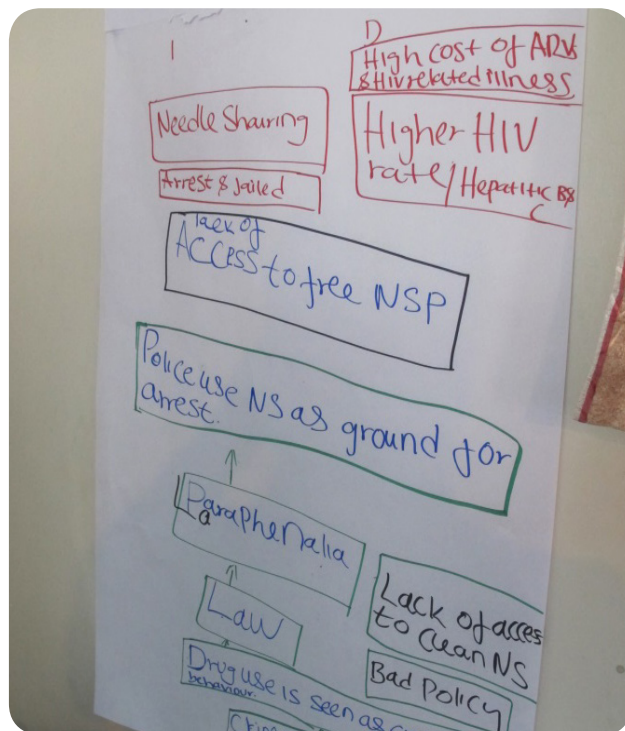 I
D
High cost of ARVs
& Hiv related illness
Needle Shairing
Higher HIV
rate/Hepatitic B&
C
Arrest & Jailed
lack of
ACCess to free NSP
Police use NS as ground for
arrest.
Paraphenalia
a
Law
Lack of acces
to clean NS
Drug use is seen as
behaviour.
Bad Policy